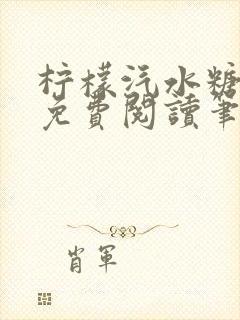 柠檬汽水糖
免費閱讀筆
肖軍